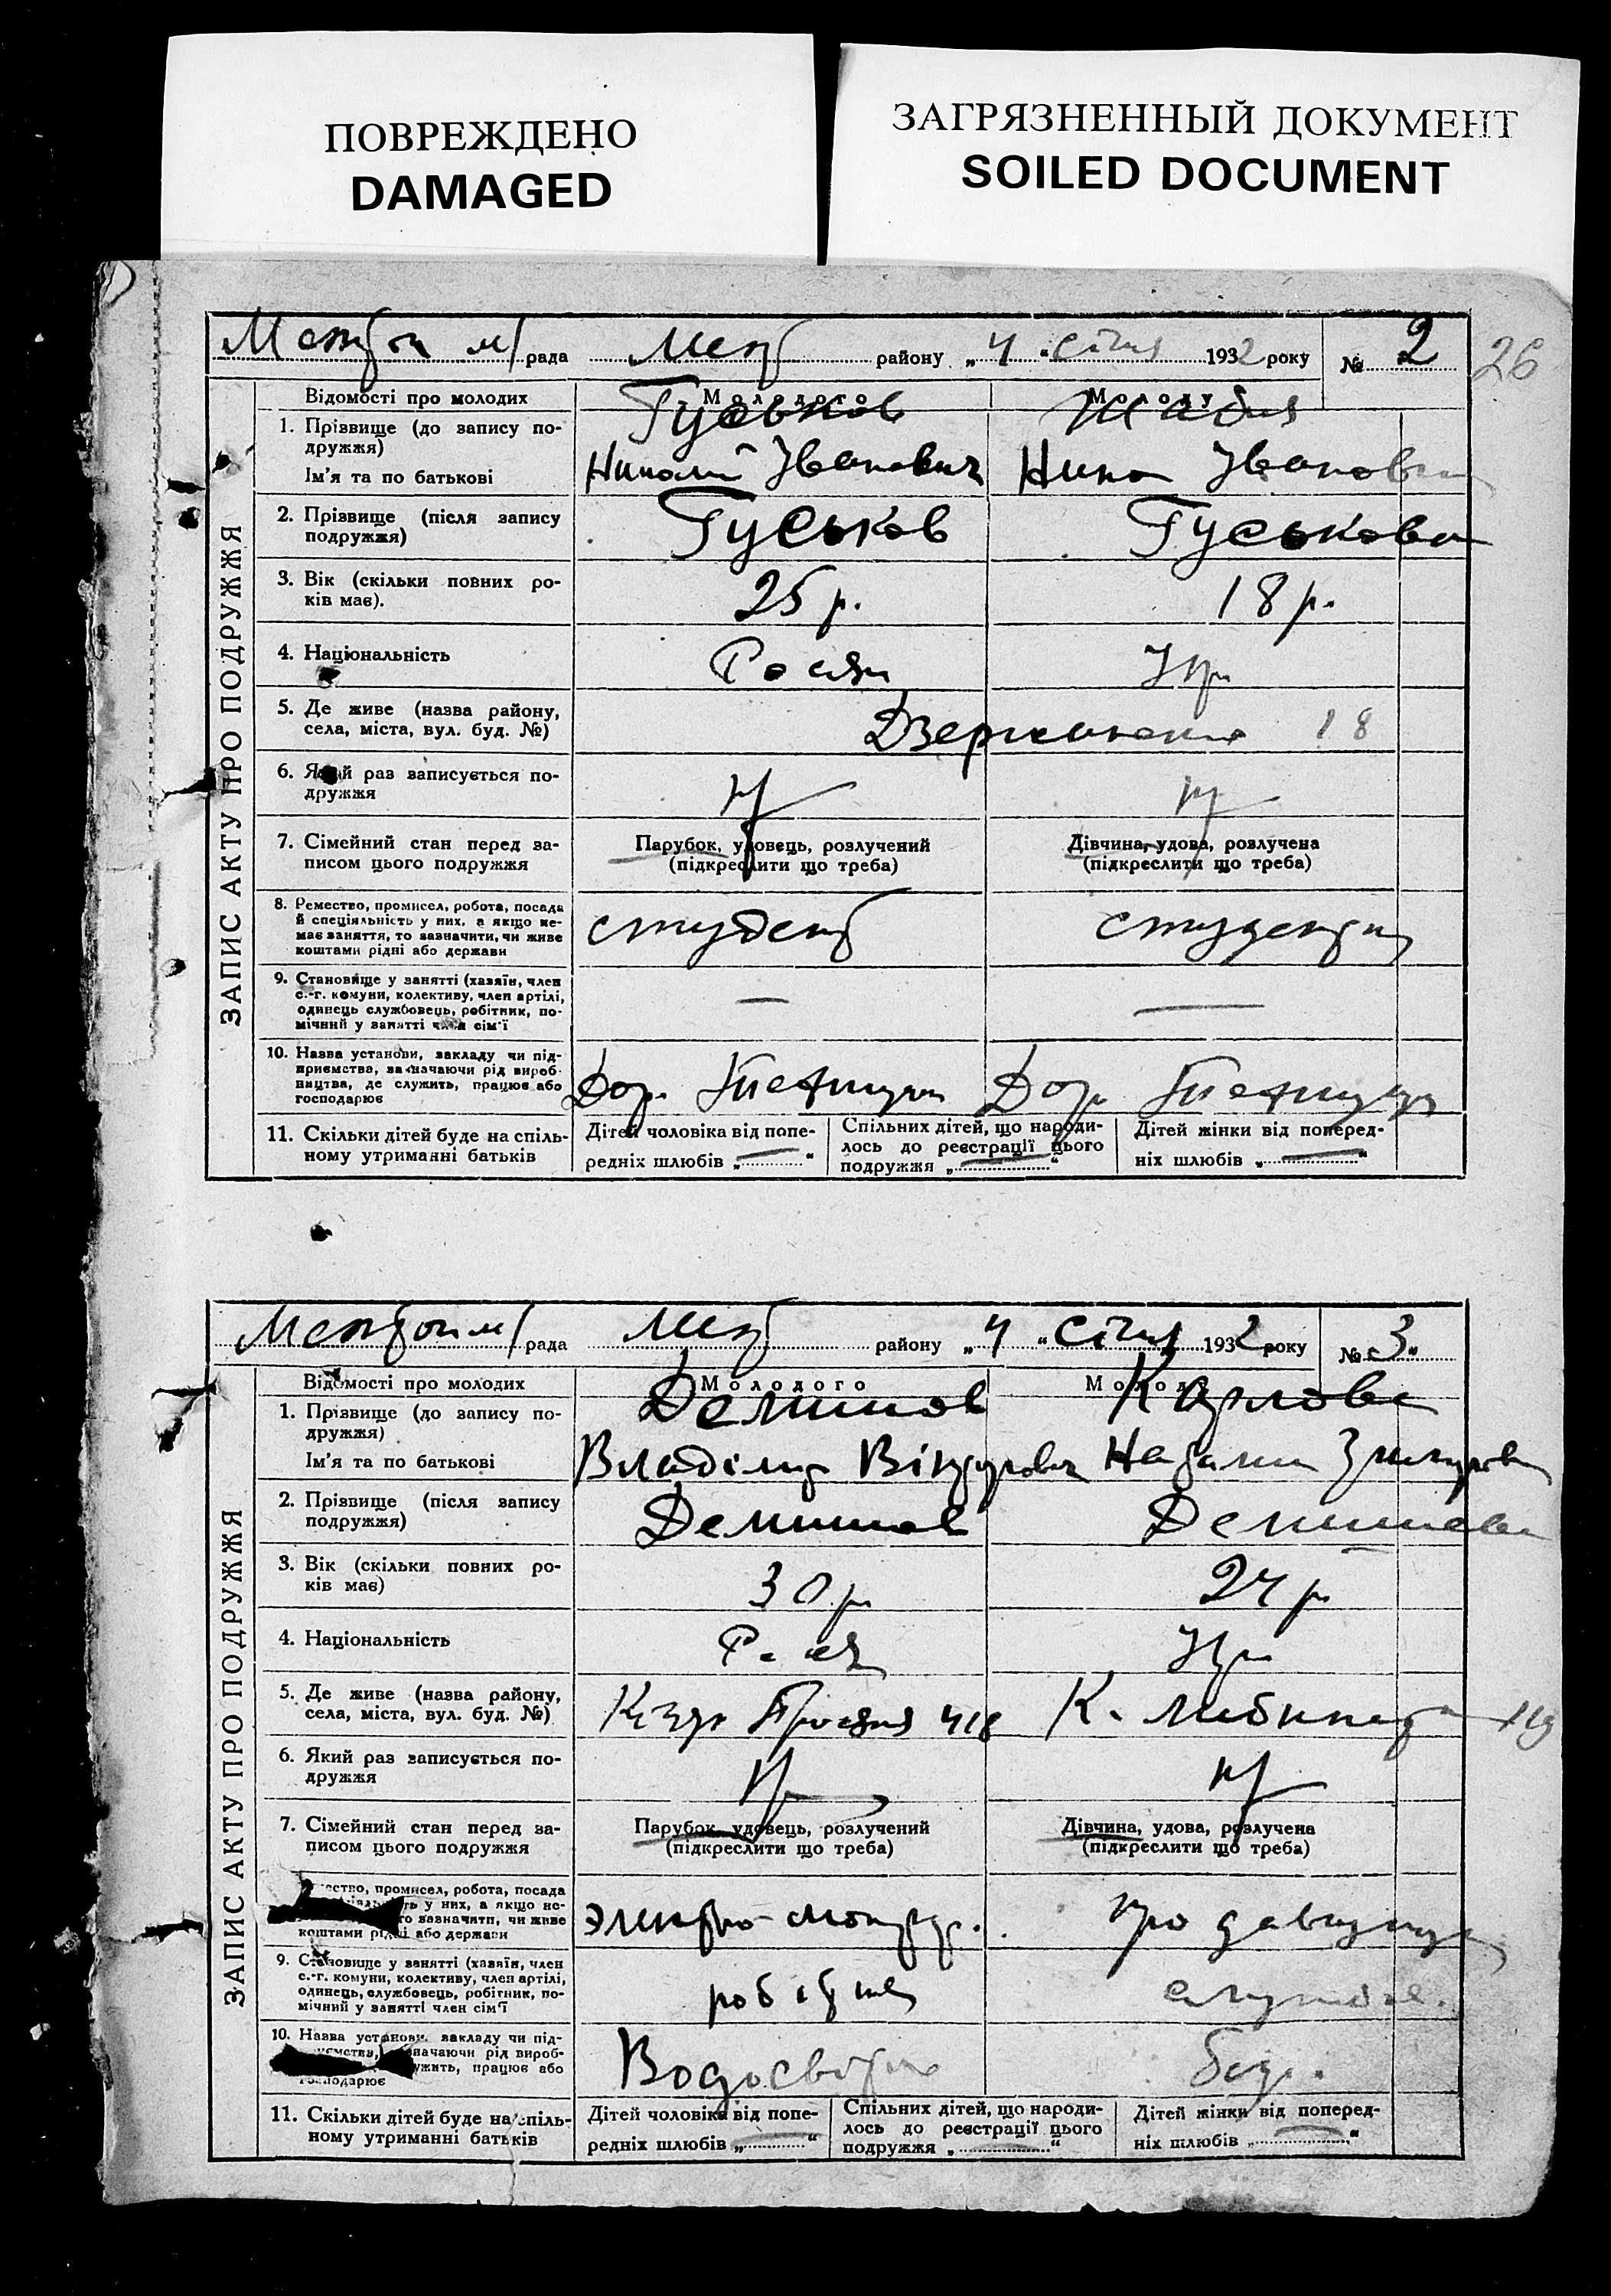 ПОВРЕЖДЕНО
DAMAGED
ЗАГРЯЗНЕННЫЙ ДОКУМЕНТ
SOILED DOCUMENT
рада району „4“ січня 1932 року № 2
26
ЗАПИС АКТУ ПРО ПОДРУЖЖЯ
Відомості про молодих
Молодого
Молоду
1. Прізвище (до запису по-
дружжя)
Гуськов
Ім'я та по батькові
Николай Іванович
Нина Іванов
2. Прізвище (після запису
подружжя)
Гуськов
Гуськова
3. Вік (скільки повних ро-
ків має).
25 р.
18 р.
4. Національність
Росіян
Укр
5. Де живе (назва району,
села, міста, вул. буд. №)
18
6. Який раз записується по-
дружжя
7. Сімейний стан перед за-
писом цього подружжя
Парубок, удовець, розлучений
(підкреслити що треба)
Дівчина, удова, розлучена
(підкреслити що треба)
8. Ремество, промисел, робота, посада
й спеціяльність у них, а якщо не-
має заняття, то зазначити, чи живе
коштами рідні або держави
студент
студентка
9. Становище у занятті (хазяїн, член
с.-г. комуни, колективу, член артілі,
одинець службовець, робітник, по-
мічний у занятті член сім'ї
—
—
10. Назва установи, закладу чи під-
приємства, зазначаючи рід вироб-
ництва, де служить, працює або
господарює
Дор. Технікум
Дор. Технікум
11. Скільки дітей буде на спіль-
ному утриманні батьків
Дітей чоловіка від попе-
редніх шлюбів „—“
Спільних дітей, що народи-
лось до реєстрації цього
подружжя „—“
Дітей жінки від поперед-
ніх шлюбів „—“
рада району „4“ січня 1932 року № 3.
ЗАПИС АКТУ ПРО ПОДРУЖЖЯ
Відомості про молодих
Молодого
1. Прізвище (до запису по-
дружжя)
Карлова
Ім'я та по батькові
Владімір Вікторович
2. Прізвище (після запису
подружжя)
3. Вік (скільки повних ро-
ків має)
30 р
24 р
4. Національність
Укр
5. Де живе (назва району,
села, міста, вул. буд. №)
К. Либкнехта 119
6. Який раз записується по-
дружжя
7. Сімейний стан перед за-
писом цього подружжя
Парубок, удовець, розлучений
(підкреслити що треба)
Дівчина, удова, розлучена
(підкреслити що треба)
промисел, робота, посада
у них, а якщо не-
зазначити, чи живе
коштами рідні або держави
9. Становище у занятті (хазяїн, член
с.-г. комуни, колективу, член артілі,
одинець, службовець, робітник, по-
мічний у занятті член сім'ї
робітник
10. Назва установи, закладу чи під-
зазначаючи рід вироб-
служить, працює або
господарює
11. Скільки дітей буде на спіль-
ному утриманні батьків
Дітей чоловіка від попе-
редніх шлюбів „—“
Спільних дітей, що народи-
лось до реєстрації цього
подружжя „—“
Дітей жінки від поперед-
ніх шлюбів „—“